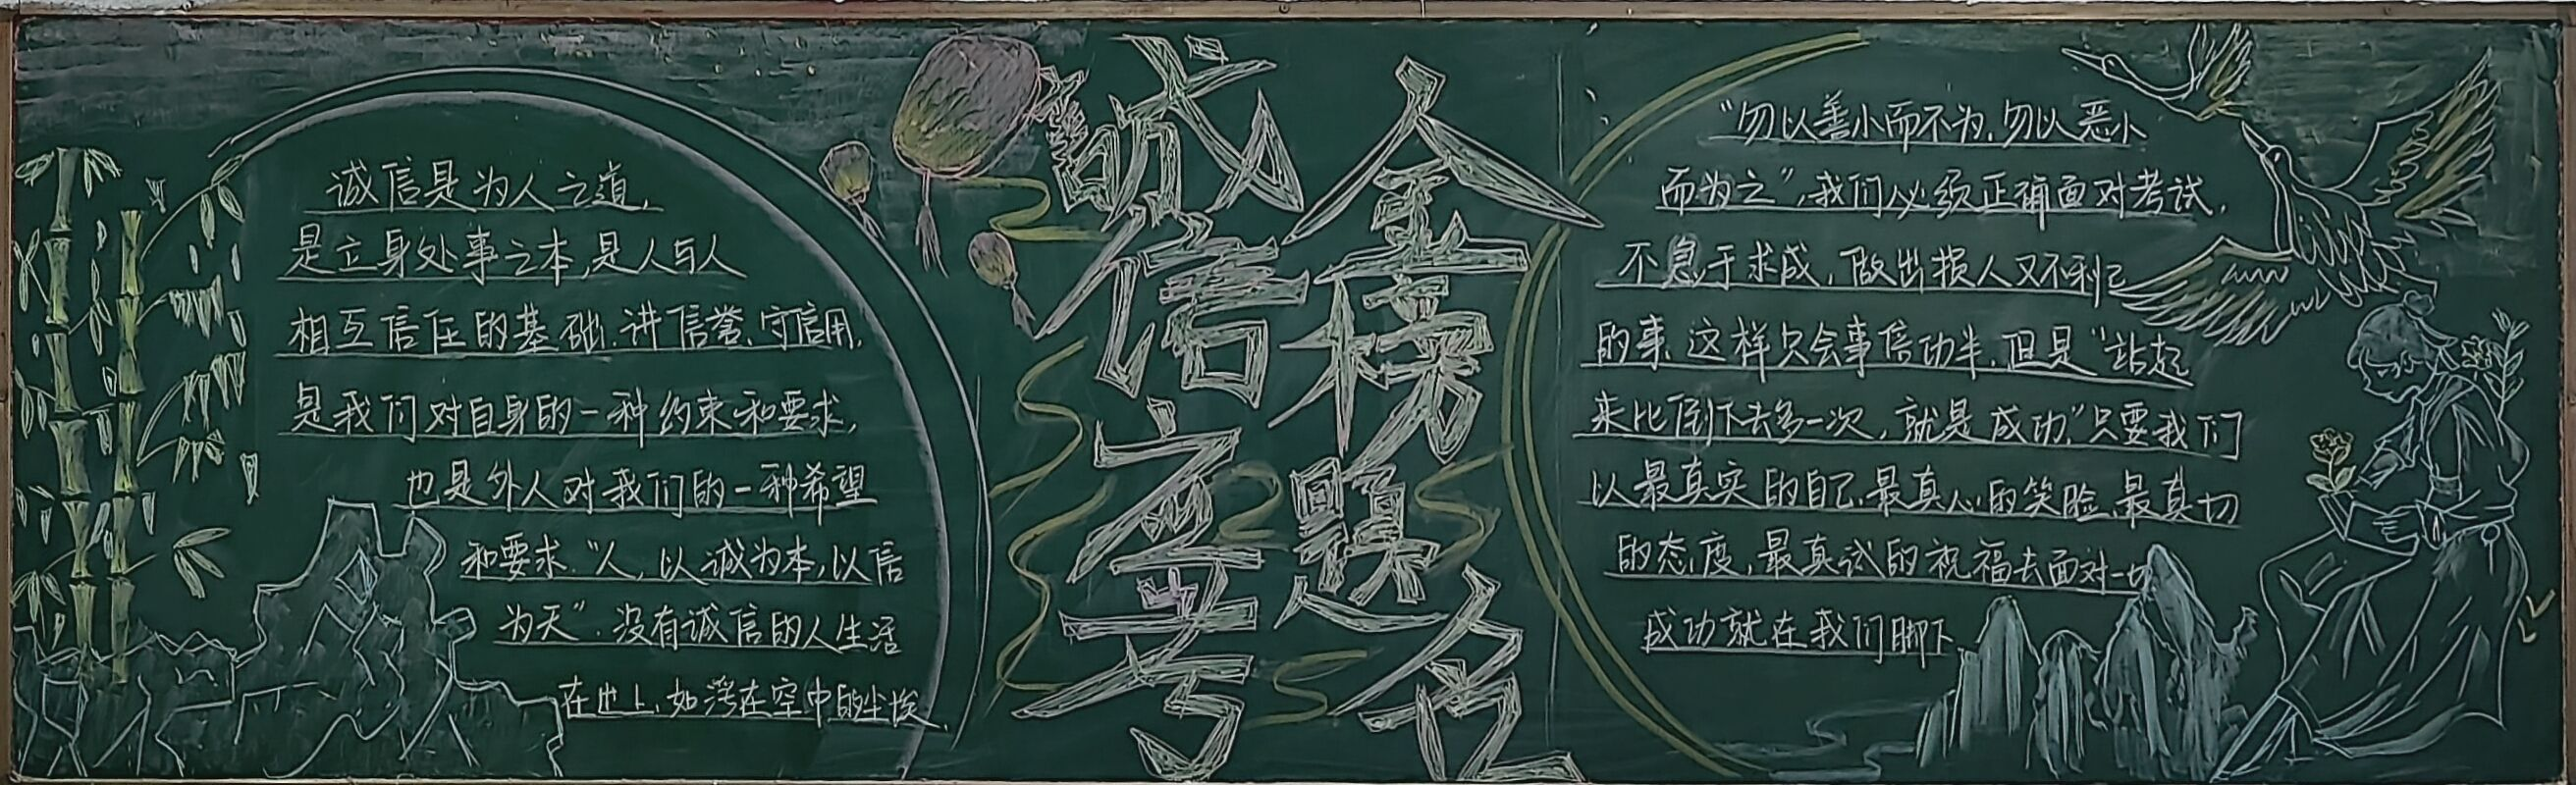 诚信是为人之道,
是立身处事之本,是人与人
相互信任的基础.讲信誉、守信用,
是我们对自身的一种约束和要求,
也是外人对我们的一种希望
和要求."人,以诚为本,以信
为天".没有诚信的人生活
在世上,如浮在空中的尘埃.
诚信应考
金榜题名
"勿以善小而不为.勿以恶小
而为之",我们必须正确面对考试,
不急于求成,做出损人又不利己
的事.这样只会事倍功半.但是"站起
来比倒下去多一次,就是成功."只要我们
以最真实的自己.最真心的笑脸.最真切
的态度,最真试的祝福去面对一切
成功就在我们脚下